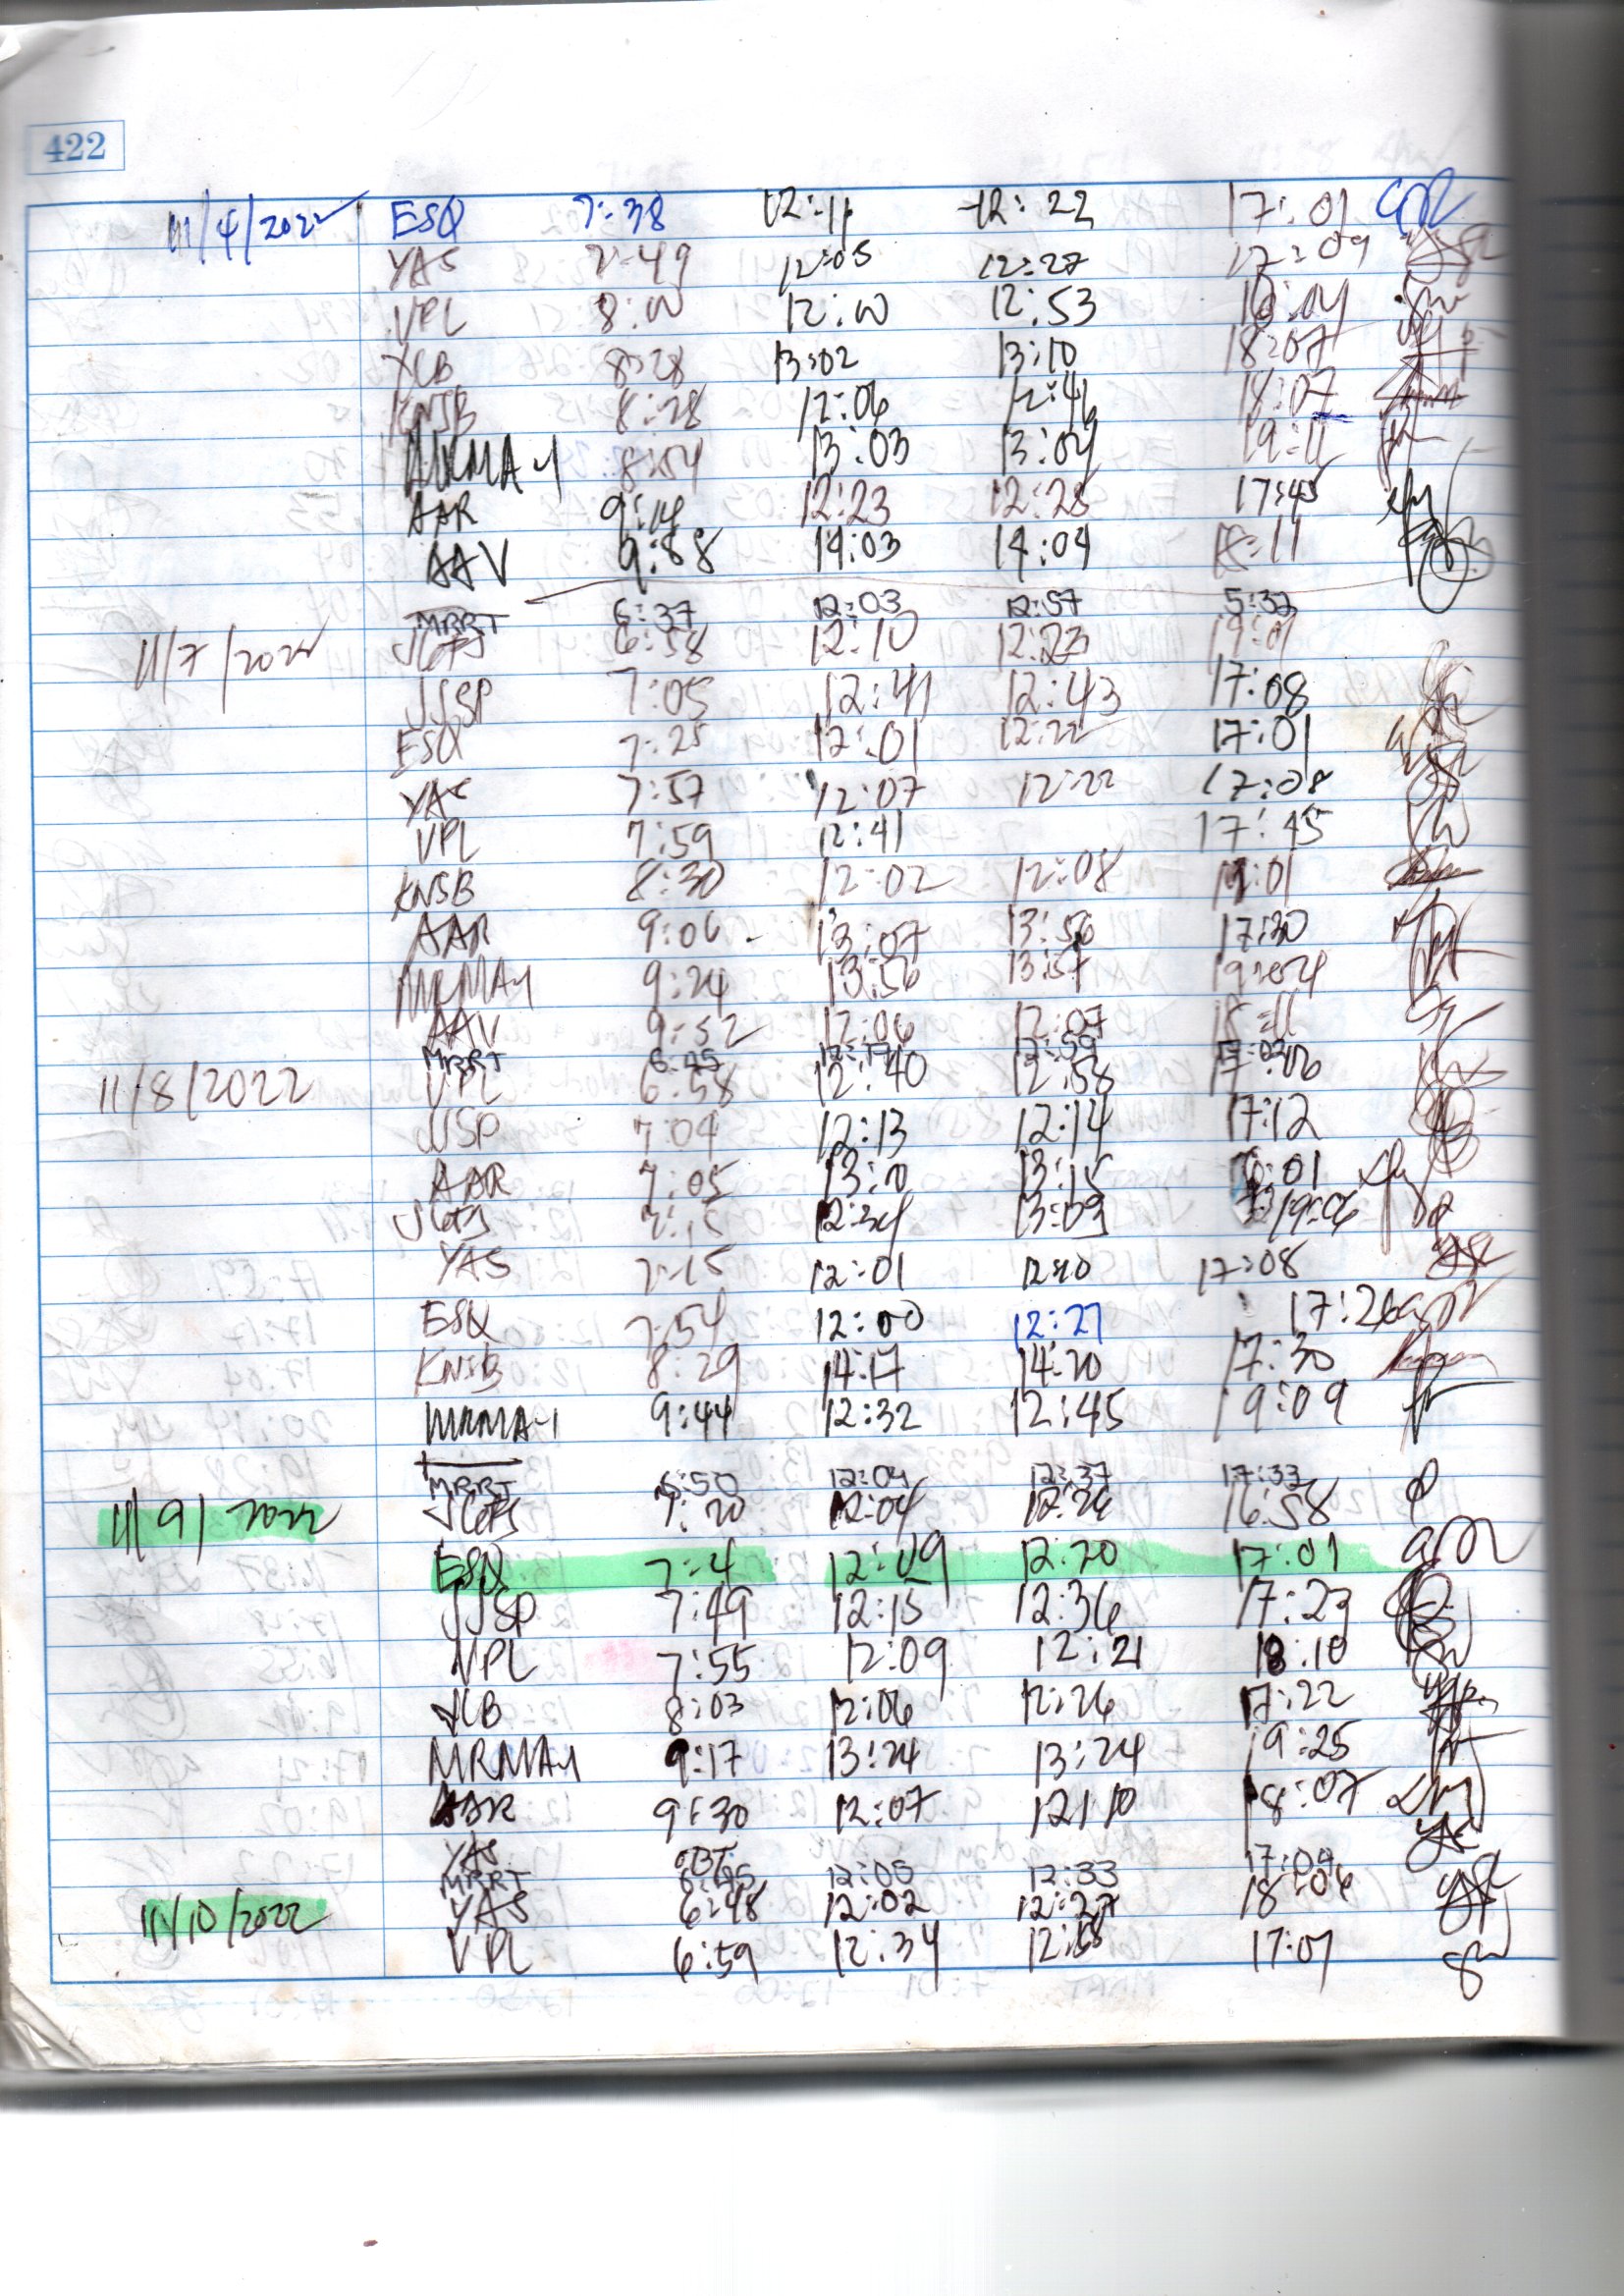 422
11/4/2022 ESQ 7:38 12:11 12:22 17:01
YAS 7:49 12:05 12:27 17:09
VPL 8:00 12:00 12:53
YCB 8:28 13:02 13:10 18:07
KNSB 8:28 12:06 12:46 18:07
MRMAY 8:54 13:03 13:04 19:11
AAR 9:14 12:23 12:28 17:45
AAV 14:03 14:04 18:11
MRRT 6:37 12:03 12:57 5:32
11/7/2022 6:58 12:10 12:23
JJSP 7:05 12:41 12:43 17:08
ESQ 7:25 12:01 12:22 17:01
YAS 7:57 12:07 12:22 17:08
VPL 7:59 12:41 17:45
KNSB 8:30 12:02 12:08
AAR 9:06 13:07 13:56 17:30
MRMAY 9:24 13:56 13:57
AAV 9:52 12:06 12:07 18:11
MRRT 6:45 12:59
11/8/2022 VPL 6:58 12:40 12:58
JJSP 7:04 12:13 12:14 17:12
AAR 7:05 13:15
7:15 12:34 13:03 19:06
YAS 7:15 12:01 12:10 17:08
ESQ 7:54 12:00 12:27 17:26
KNSB 8:29 14:17 14:20 17:30
MRMAY 9:44 12:32 12:45 19:09
MRRT 6:50 12:04 12:37 17:33
11/9/2022 7:20 12:04 12:26 16:58
ESQ 7:4 12:09 12:20 17:01
JJSP 7:49 12:15 12:36 17:23
VPL 7:55 12:09 12:21 18:10
YCB 8:03 12:06 12:26 17:22
MRMAY 9:17 13:24 13:24 19:25
AAR 9:30 12:07 12:10 18:07
YAS
MRRT 6:45 12:05 12:33 17:04
11/10/2022 YAS 6:48 12:02 12:27 18:06
VPL 6:59 12:34 12:58 17:07